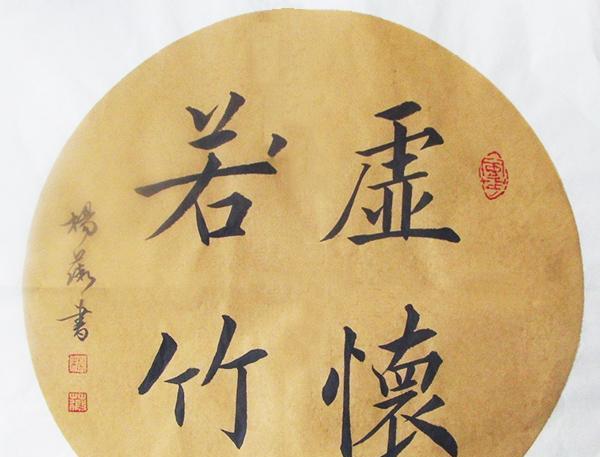 虚懷
若竹
楊薇書